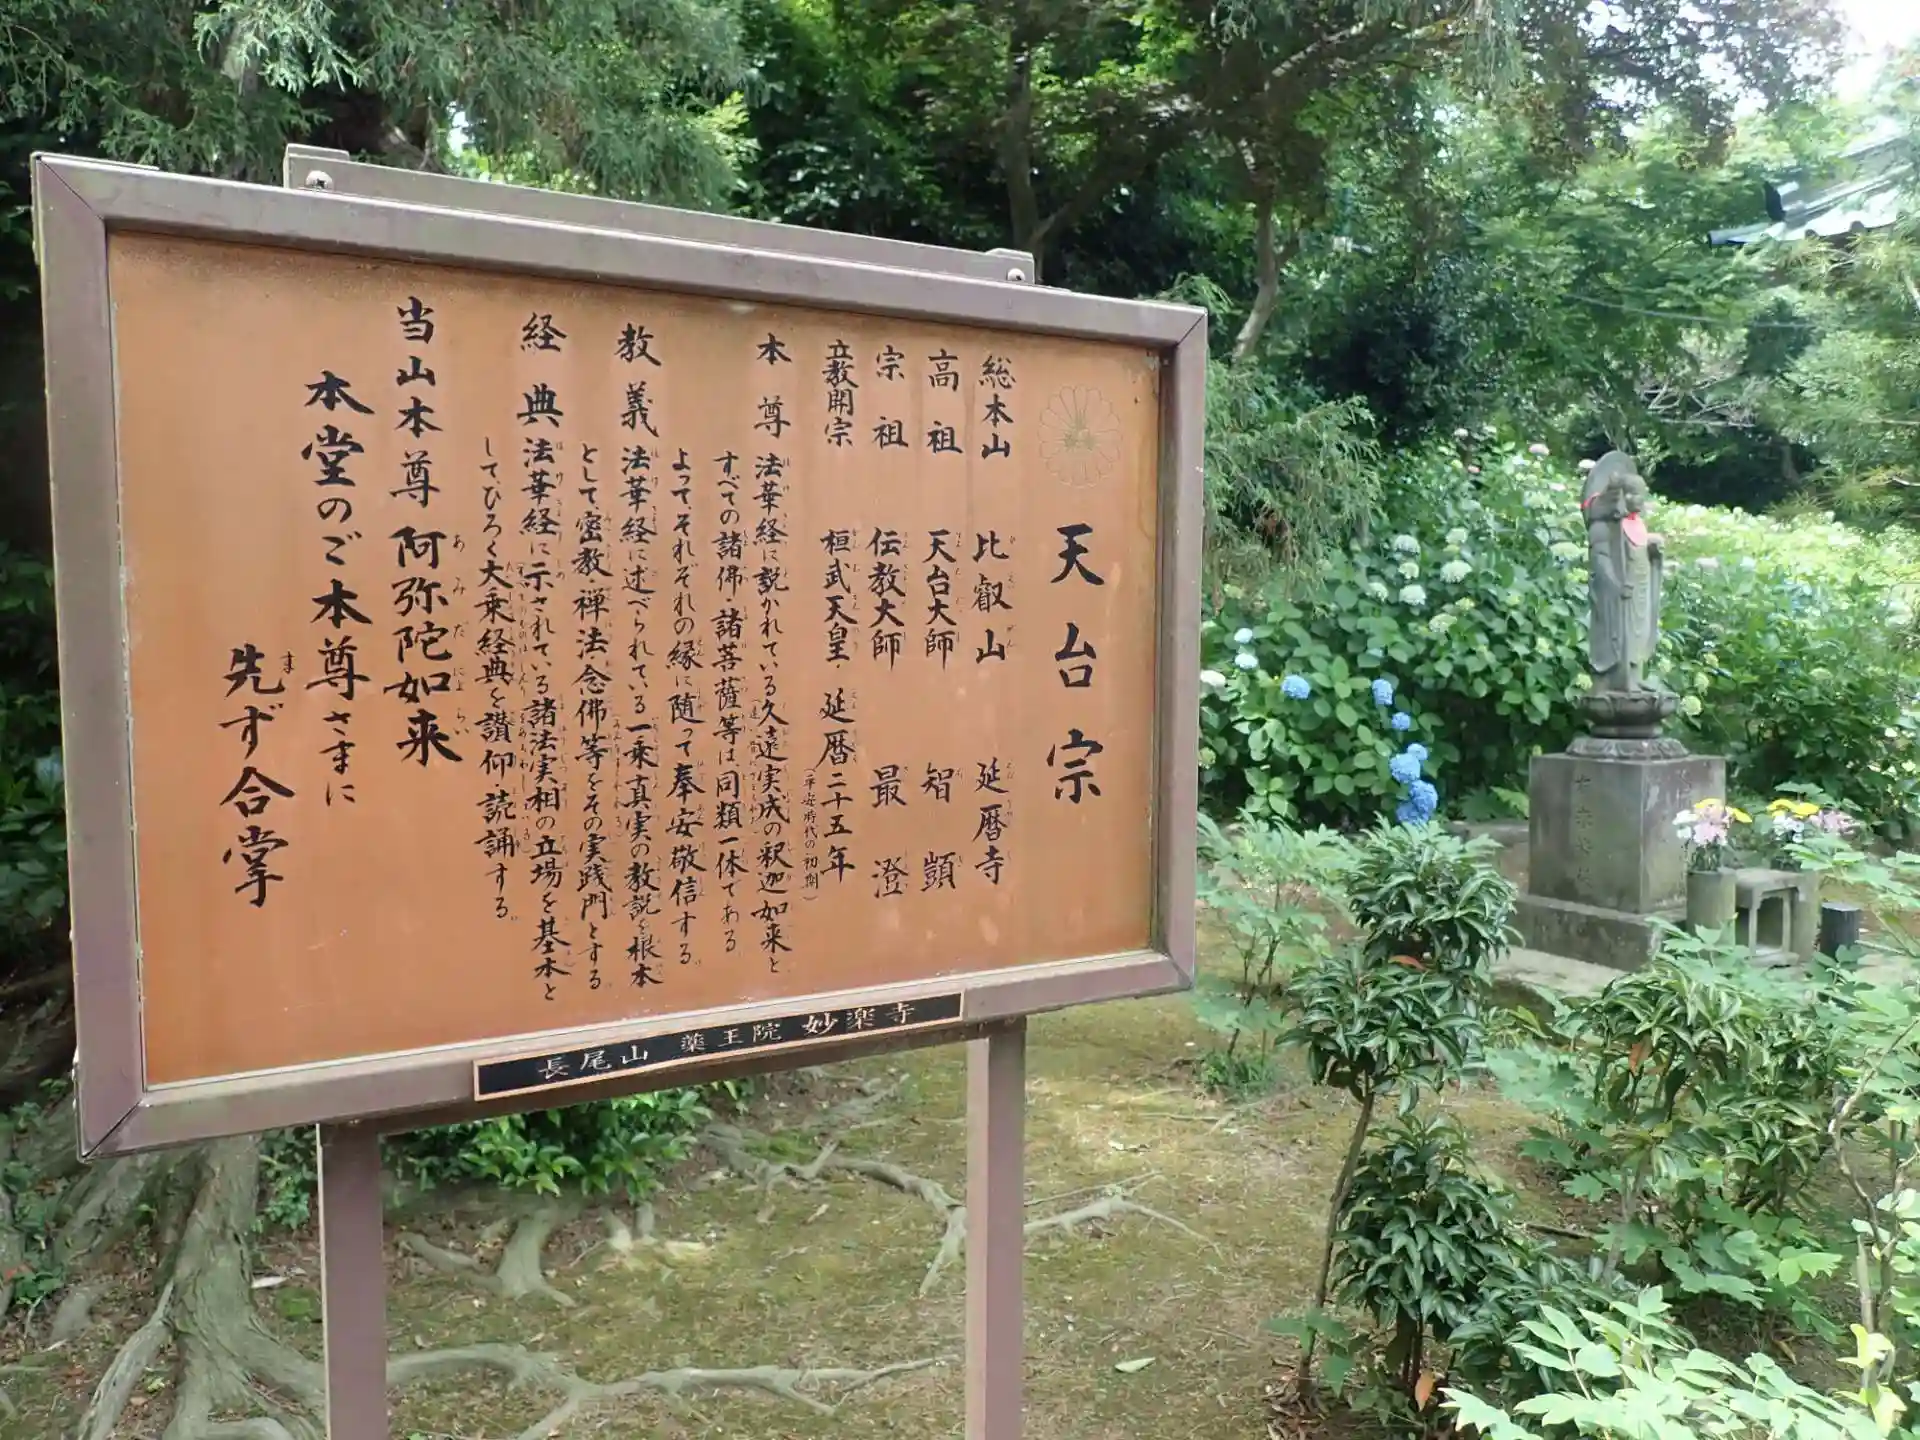 天台宗
総本山 比叡山 延暦寺
高祖 天台大師 智顗
宗祖 伝教大師 最澄
立教開宗 桓武天皇・延暦二十五年
(平安時代の初期)
本尊 法華経に説かれている久遠実成の釈迦如来と
すべての諸佛・諸菩薩等は同類一体である
よって、それぞれの縁に随って奉安敬信する
教義 法華経に述べられている一乗真実の教説を根本
として、密教・禅法・念佛等をその実践門とする
経典 法華経に示されている諸法実相の立場を基本と
して、ひろく大乗経典を讃仰・読誦する
当山本尊 阿弥陀如来
あみだによらい
本堂のご本尊さまに
先ず合掌
長尾山 薬王院 妙楽寺